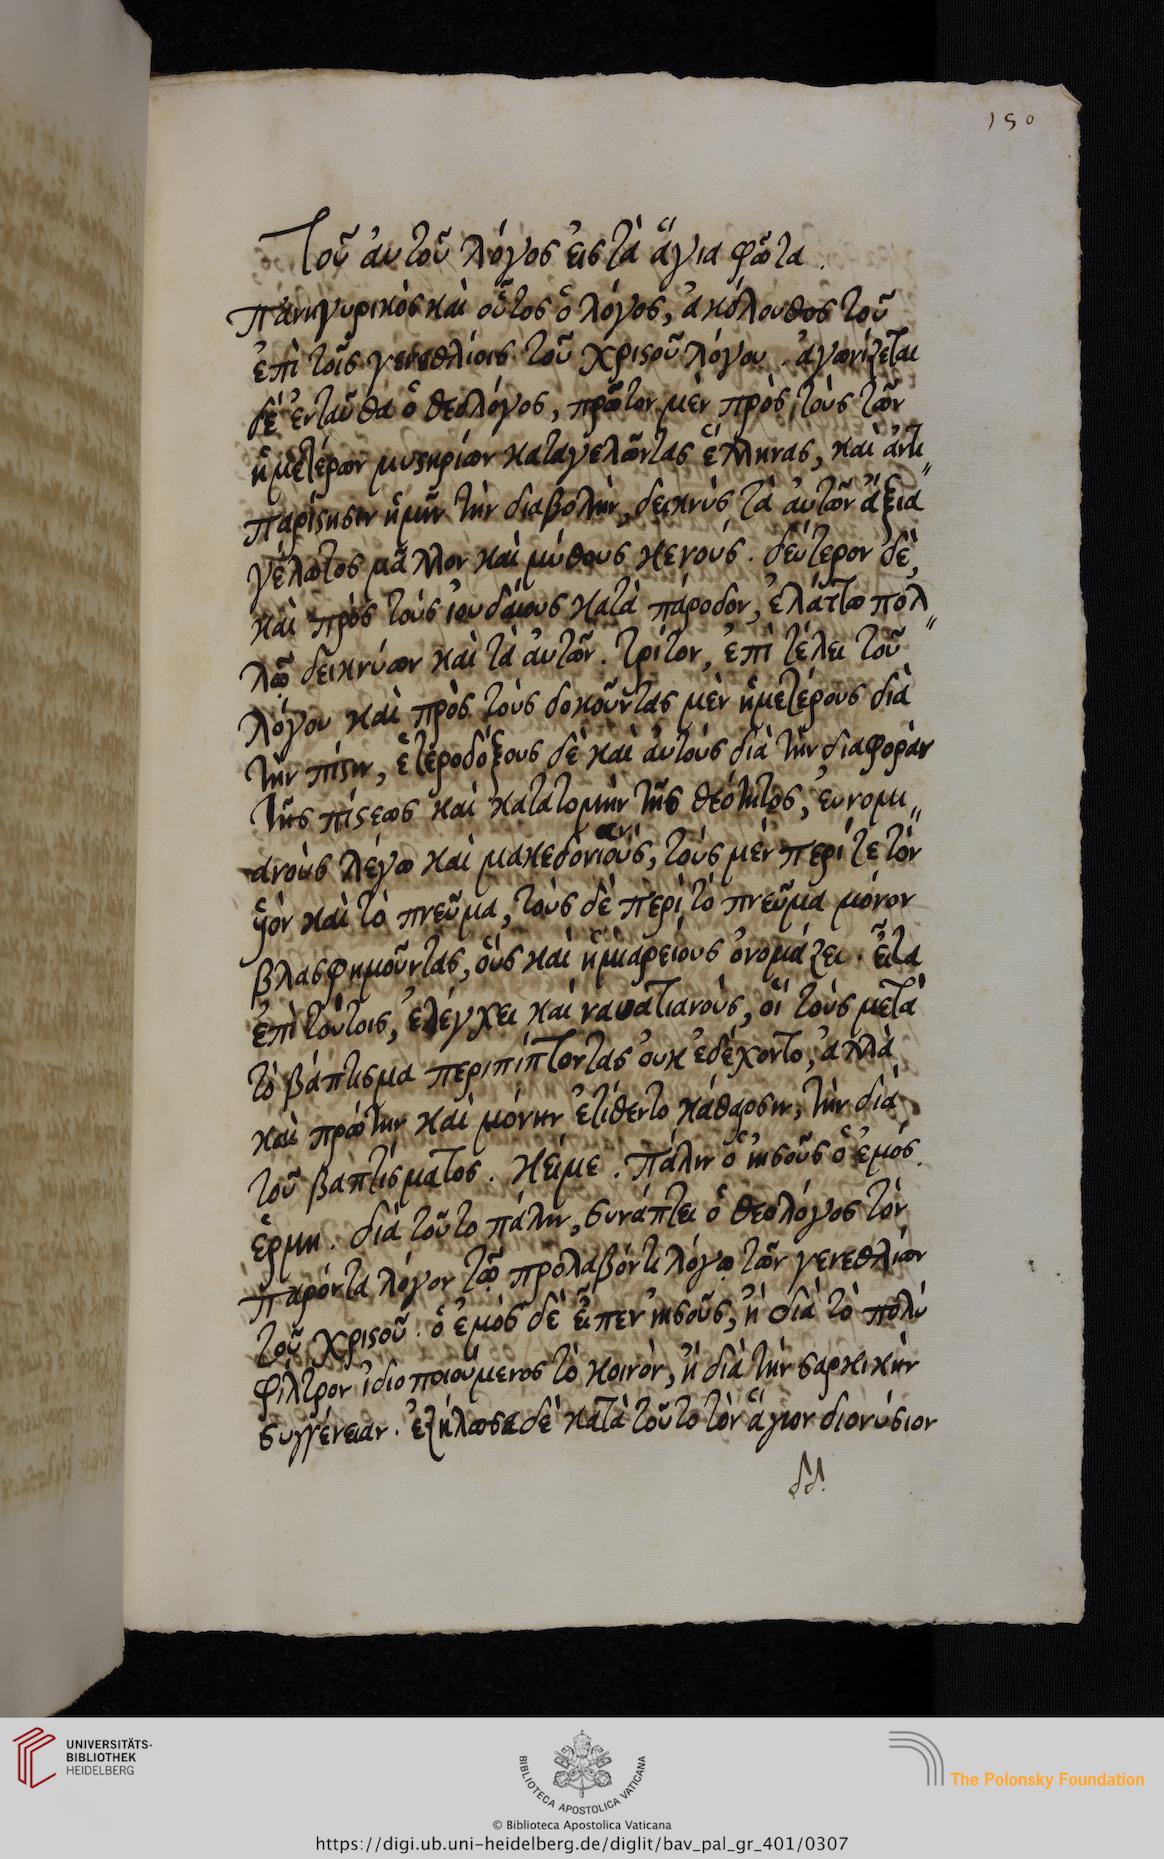 150
Τοῦ ἀυτοῦ λόγος ἐις τὰ ἅγια φῶτα.
πανηγυρικὸς καὶ οὗτος ὁ λόγος, ἀκόλουθος τοῦ
ἐπὶ τοῖς γενεθλίοις τοῦ χριϛοῦ λόγου. ἀγωνίζεται
δὲ ἐνταῦθα ὁ θεολόγος, πρῶτον μὲν πρὸς τοὺς τῶν
ἡμετέρων μυϛηρίων καταγελῶντας ἕλληνας, καὶ ἀντι〃
παρίϛησιν ἡμῖν τὴν διαβολὴν, δεικνὺς τὰ ἀυτῶν ἄξια
γέλωτος μᾶλλον καὶ μύθους κενούς. δεύτερον δὲ,
καὶ πρὸς τοὺς ἰουδαίους κατὰ πάροδον, ἐλάττω πολ〃
λῷ δεικνύων καὶ τὰ ἀυτῶν. τρίτον, ἐπὶ τέλει τοῦ
λόγου καὶ πρὸς τοὺς δοκοῦντας μὲν ἡμετέρους διὰ
τὴν πίϛιν, ἑτεροδόξους δὲ καὶ ἀυτοὺς διὰ τὴν διαφορὰν
τῆς πίϛεως καὶ κατατομὴν τῆς θεότητος, ἐυνομι〃
ανοὺς λέγω καὶ μακεδονιανούς, τοὺς μὲν περί τε τὸν
ὑὸν καὶ τὸ πνεῦμα, τοὺς δὲ περὶ τὸ πνεῦμα μόνον
βλασφημοῦντας, οὓς καὶ ἡμιαρείους ὀνομάζει. ἐῖτα
ἐπὶ τούτοις, ἐλέγχει καὶ ναυατιανοὺς, οἳ τοὺς μετὰ
τὸ βάπτισμα περιπίπτοντας ὀυκ ἐδέχοντο, ἀλλὰ
καὶ πρώτην καὶ μόνην ἐτίθεντο κάθαρσιν, τὴν διὰ
τοῦ βαπτίσματος. κείμε. Πάλιν ὁ ἰησοῦς ὁ ἐμός.
ἑρμη. διὰ τοῦτο πάλιν, συνάπτει ὁ θεολόγος τὸν
παρόντα λόγον τῷ προλαβόντι λόγῳ τῶν γενεθλίων
τοῦ χριϛοῦ. ὁ ἐμὸς δὲ ἐῖπεν ἰησοῦς, ἢ διὰ τὸ πολὺ
φίλτρον ἰδιοποιούμενος τὸ κοινὸν, ἢ διὰ τὴν σαρκικὴν
συγγένειαν. ἐζήλωσα δὲ κατὰ τοῦτο τὸν ἅγιον διονύσιον
UNIVERSITÄTS-
BIBLIOTHEK
HEIDELBERG
BIBLIOTECA APOSTOLICA VATICANA
The Polonsky Foundation
© Biblioteca Apostolica Vaticana
https://digi.ub.uni-heidelberg.de/diglit/bav_pal_gr_401/0307